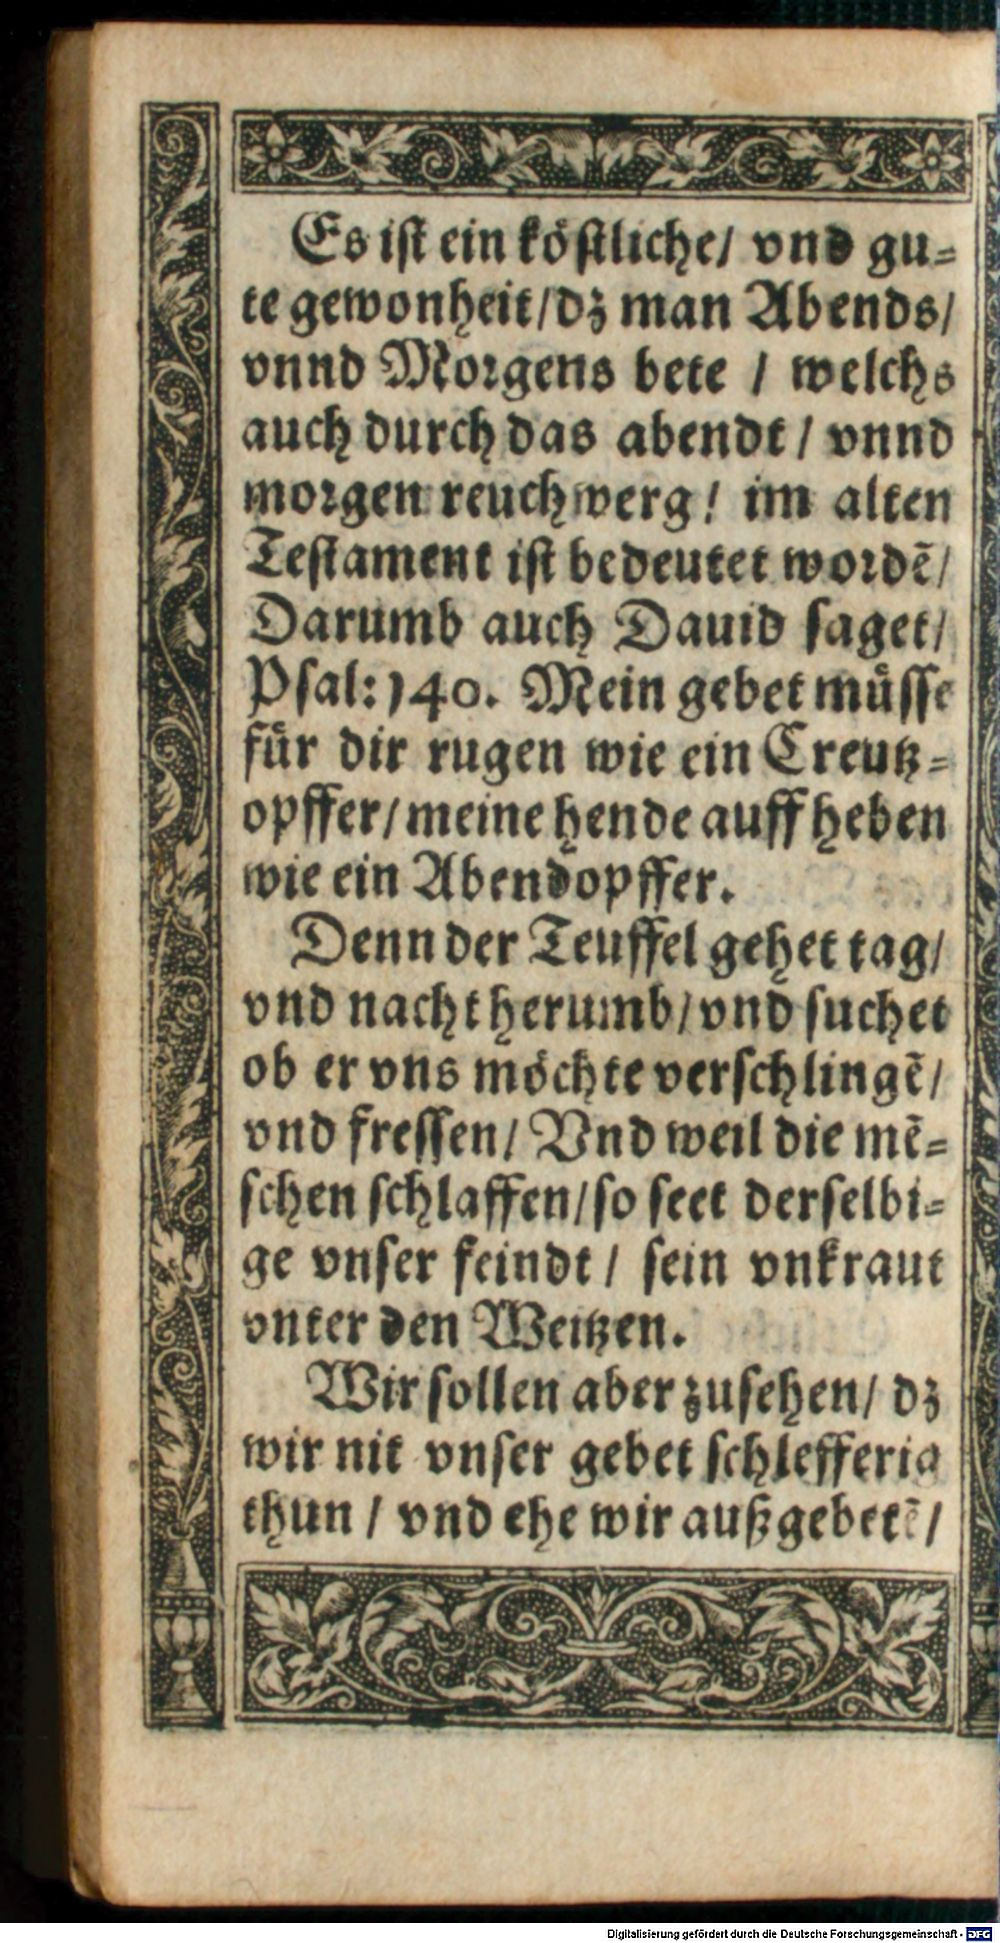 Es iſt ein köſtliche/ vnd gu-
te gewonheit/dz man Abends/
vnnd Morgens bete / welchs
auch durch das abendt / vnnd
morgen reuchwerg/ im alten
Teſtament iſt bedeutet wordē/
Darumb auch Dauid ſaget/
Pſal: 140. Mein gebet müſſe
für dir rugen wie ein Creutz-
opffer/meine hende auffheben
wie ein Abendopffer.
Denn der Teuffel gehet tag/
vnd nacht herumb/vnd ſuchet
ob er vns möchte verſchlingē/
vnd freſſen/ Vnd weil die mē-
ſchen ſchlaffen/ſo ſeet derſelbi-
ge vnſer feindt / ſein vnkraut
vnter den Weitzen.
Wir ſollen aber zuſehen/ dz
wir nit vnſer gebet ſchlefferig
thun / vnd ehe wir außgebetē/
Digitalisierung gefördert durch die Deutsche Forschungsgemeinschaft - DFG